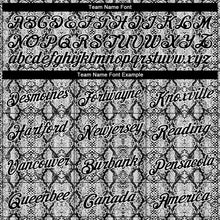 Team Name Font
ABCDEFGHIJKLM
NOPQRSTUVWXYZ
abcdefghijklmnopqrstuvwxyz
Team Name Font Example
Desmoines Fortwayne Knoxville
Hartford New Jersey Reading
Vancouver Burbank Pensacola
Queenbee Canada America